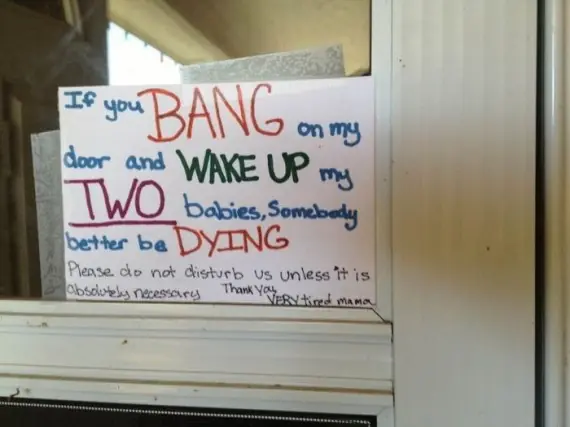 If you BANG on my
door and WAKE UP my
TWO babies, Somebody
better be DYING
Please do not disturb us unless it is
absolutely necessary Thank You,
VERY tired mama